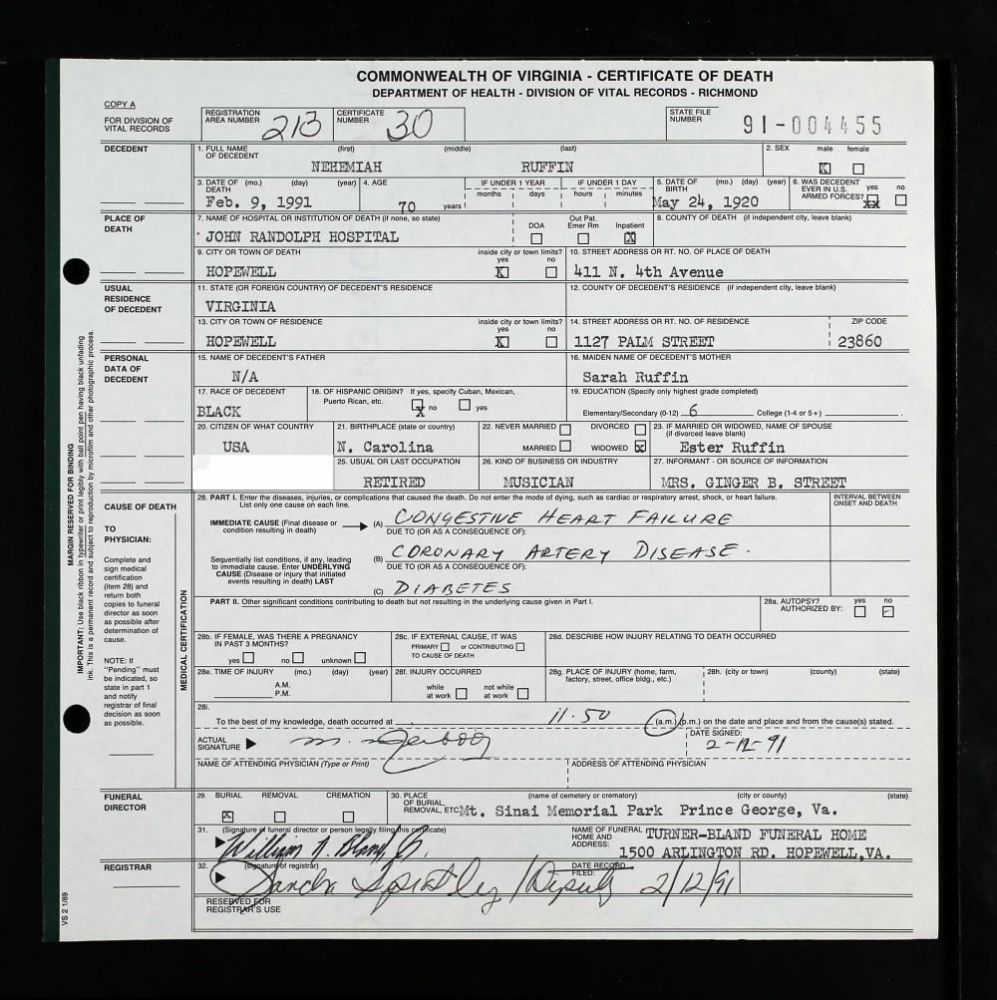 COMMONWEALTH OF VIRGINIA - CERTIFICATE OF DEATH
DEPARTMENT OF HEALTH - DIVISION OF VITAL RECORDS - RICHMOND
COPY A
FOR DIVISION OF VITAL RECORDS
REGISTRATION AREA NUMBER 213
CERTIFICATE NUMBER 30
STATE FILE NUMBER 91-004455
DECEDENT
1. FULL NAME OF DECEDENT (first) (middle) (last)
NEHEMIAH RUFFIN
2. SEX male female
X
3. DATE OF DEATH (mo.) (day) (year)
Feb. 9, 1991
4. AGE
70 years
IF UNDER 1 YEAR months days
IF UNDER 1 DAY hours minutes
5. DATE OF BIRTH (mo.) (day) (year)
May 24, 1920
6. WAS DECEDENT EVER IN U.S. ARMED FORCES? yes no
XX
PLACE OF DEATH
7. NAME OF HOSPITAL OR INSTITUTION OF DEATH (if none, so state)
JOHN RANDOLPH HOSPITAL
DOA Out Pat. Emer Rm Inpatient
X
8. COUNTY OF DEATH (if independent city, leave blank)
9. CITY OR TOWN OF DEATH inside city or town limits? yes no
HOPEWELL X
10. STREET ADDRESS OR RT. NO. OF PLACE OF DEATH
411 N. 4th Avenue
USUAL RESIDENCE OF DECEDENT
11. STATE (OR FOREIGN COUNTRY) OF DECEDENT'S RESIDENCE
VIRGINIA
12. COUNTY OF DECEDENT'S RESIDENCE (if independent city, leave blank)
13. CITY OR TOWN OF RESIDENCE inside city or town limits? yes no
HOPEWELL X
14. STREET ADDRESS OR RT. NO. OF RESIDENCE ZIP CODE
1127 PALM STREET 23860
PERSONAL DATA OF DECEDENT
15. NAME OF DECEDENT'S FATHER
N/A
16. MAIDEN NAME OF DECEDENT'S MOTHER
Sarah Ruffin
17. RACE OF DECEDENT
BLACK
18. OF HISPANIC ORIGIN? If yes, specify Cuban, Mexican, Puerto Rican, etc. no yes
X
19. EDUCATION (Specify only highest grade completed)
Elementary/Secondary (0-12) 6 College (1-4 or 5+)
20. CITIZEN OF WHAT COUNTRY
USA
21. BIRTHPLACE (state or country)
N. Carolina
22. NEVER MARRIED DIVORCED
MARRIED WIDOWED X
23. IF MARRIED OR WIDOWED, NAME OF SPOUSE (if divorced leave blank)
Ester Ruffin
25. USUAL OR LAST OCCUPATION
RETIRED
26. KIND OF BUSINESS OR INDUSTRY
MUSICIAN
27. INFORMANT - OR SOURCE OF INFORMATION
MRS. GINGER B. STREET
CAUSE OF DEATH
TO PHYSICIAN:
Complete and sign medical certification (item 28) and return both copies to funeral director as soon as possible after determination of cause.
NOTE: If "Pending" must be indicated, so state in part 1 and notify registrar of final decision as soon as possible.
MEDICAL CERTIFICATION
28. PART I. Enter the diseases, injuries, or complications that caused the death. Do not enter the mode of dying, such as cardiac or respiratory arrest, shock, or heart failure. List only one cause on each line.
INTERVAL BETWEEN ONSET AND DEATH
IMMEDIATE CAUSE (Final disease or condition resulting in death)
(A) CONGESTIVE HEART FAILURE
DUE TO (OR AS A CONSEQUENCE OF):
(B) CORONARY ARTERY DISEASE.
Sequentially list conditions, if any, leading to immediate cause. Enter UNDERLYING CAUSE (Disease or injury that initiated events resulting in death) LAST
DUE TO (OR AS A CONSEQUENCE OF):
(C) DIABETES
PART II. Other significant conditions contributing to death but not resulting in the underlying cause given in Part I.
28a. AUTOPSY? AUTHORIZED BY: yes no
28b. IF FEMALE, WAS THERE A PREGNANCY IN PAST 3 MONTHS?
yes no unknown
28c. IF EXTERNAL CAUSE, IT WAS
PRIMARY or CONTRIBUTING TO CAUSE OF DEATH
28d. DESCRIBE HOW INJURY RELATING TO DEATH OCCURRED
28e. TIME OF INJURY (mo.) (day) (year)
A.M.
P.M.
28f. INJURY OCCURRED
while at work not while at work
28g. PLACE OF INJURY (home, farm, factory, street, office bldg., etc.)
28h. (city or town) (county) (state)
28i.
To the best of my knowledge, death occurred at 11.50 (a.m.) (p.m.) on the date and place and from the cause(s) stated.
ACTUAL SIGNATURE
DATE SIGNED:
2-12-91
NAME OF ATTENDING PHYSICIAN (Type or Print)
ADDRESS OF ATTENDING PHYSICIAN
FUNERAL DIRECTOR
29. BURIAL REMOVAL CREMATION
X
30. PLACE OF BURIAL, REMOVAL, ETC. (name of cemetery or crematory) (city or county) (state)
Mt. Sinai Memorial Park Prince George, Va.
31. (Signature of funeral director or person legally filing this certificate)
William N. Bland, Jr.
NAME OF FUNERAL HOME AND ADDRESS:
TURNER-BLAND FUNERAL HOME
1500 ARLINGTON RD. HOPEWELL, VA.
REGISTRAR
32. (Signature of registrar)
Sandra Spratley / Deputy
DATE RECORD FILED:
2/12/91
RESERVED FOR REGISTRAR'S USE
VS 2 1/89
MARGIN RESERVED FOR BINDING
IMPORTANT: Use black ribbon in typewriter or print legibly with ball point pen having black unfading ink. This is a permanent record and subject to reproduction by microfilm and other photographic process.